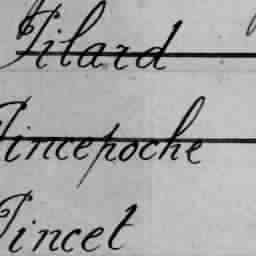 Pilard
Pincepoche
Pincet